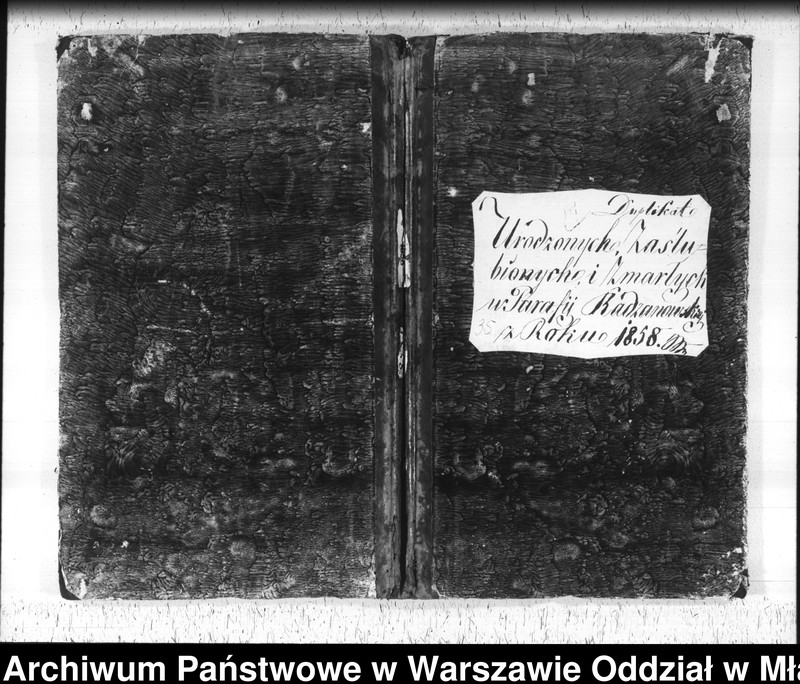 Duplikat
Urodzonych, Zaślu-
bionych, i Zmarłych
w Parafij Radzanowskiej
35 z Roku 1858.
Archiwum Państwowe w Warszawie Oddział w Mła